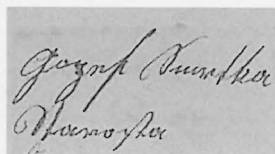 Gozef Smrtka
Starosta